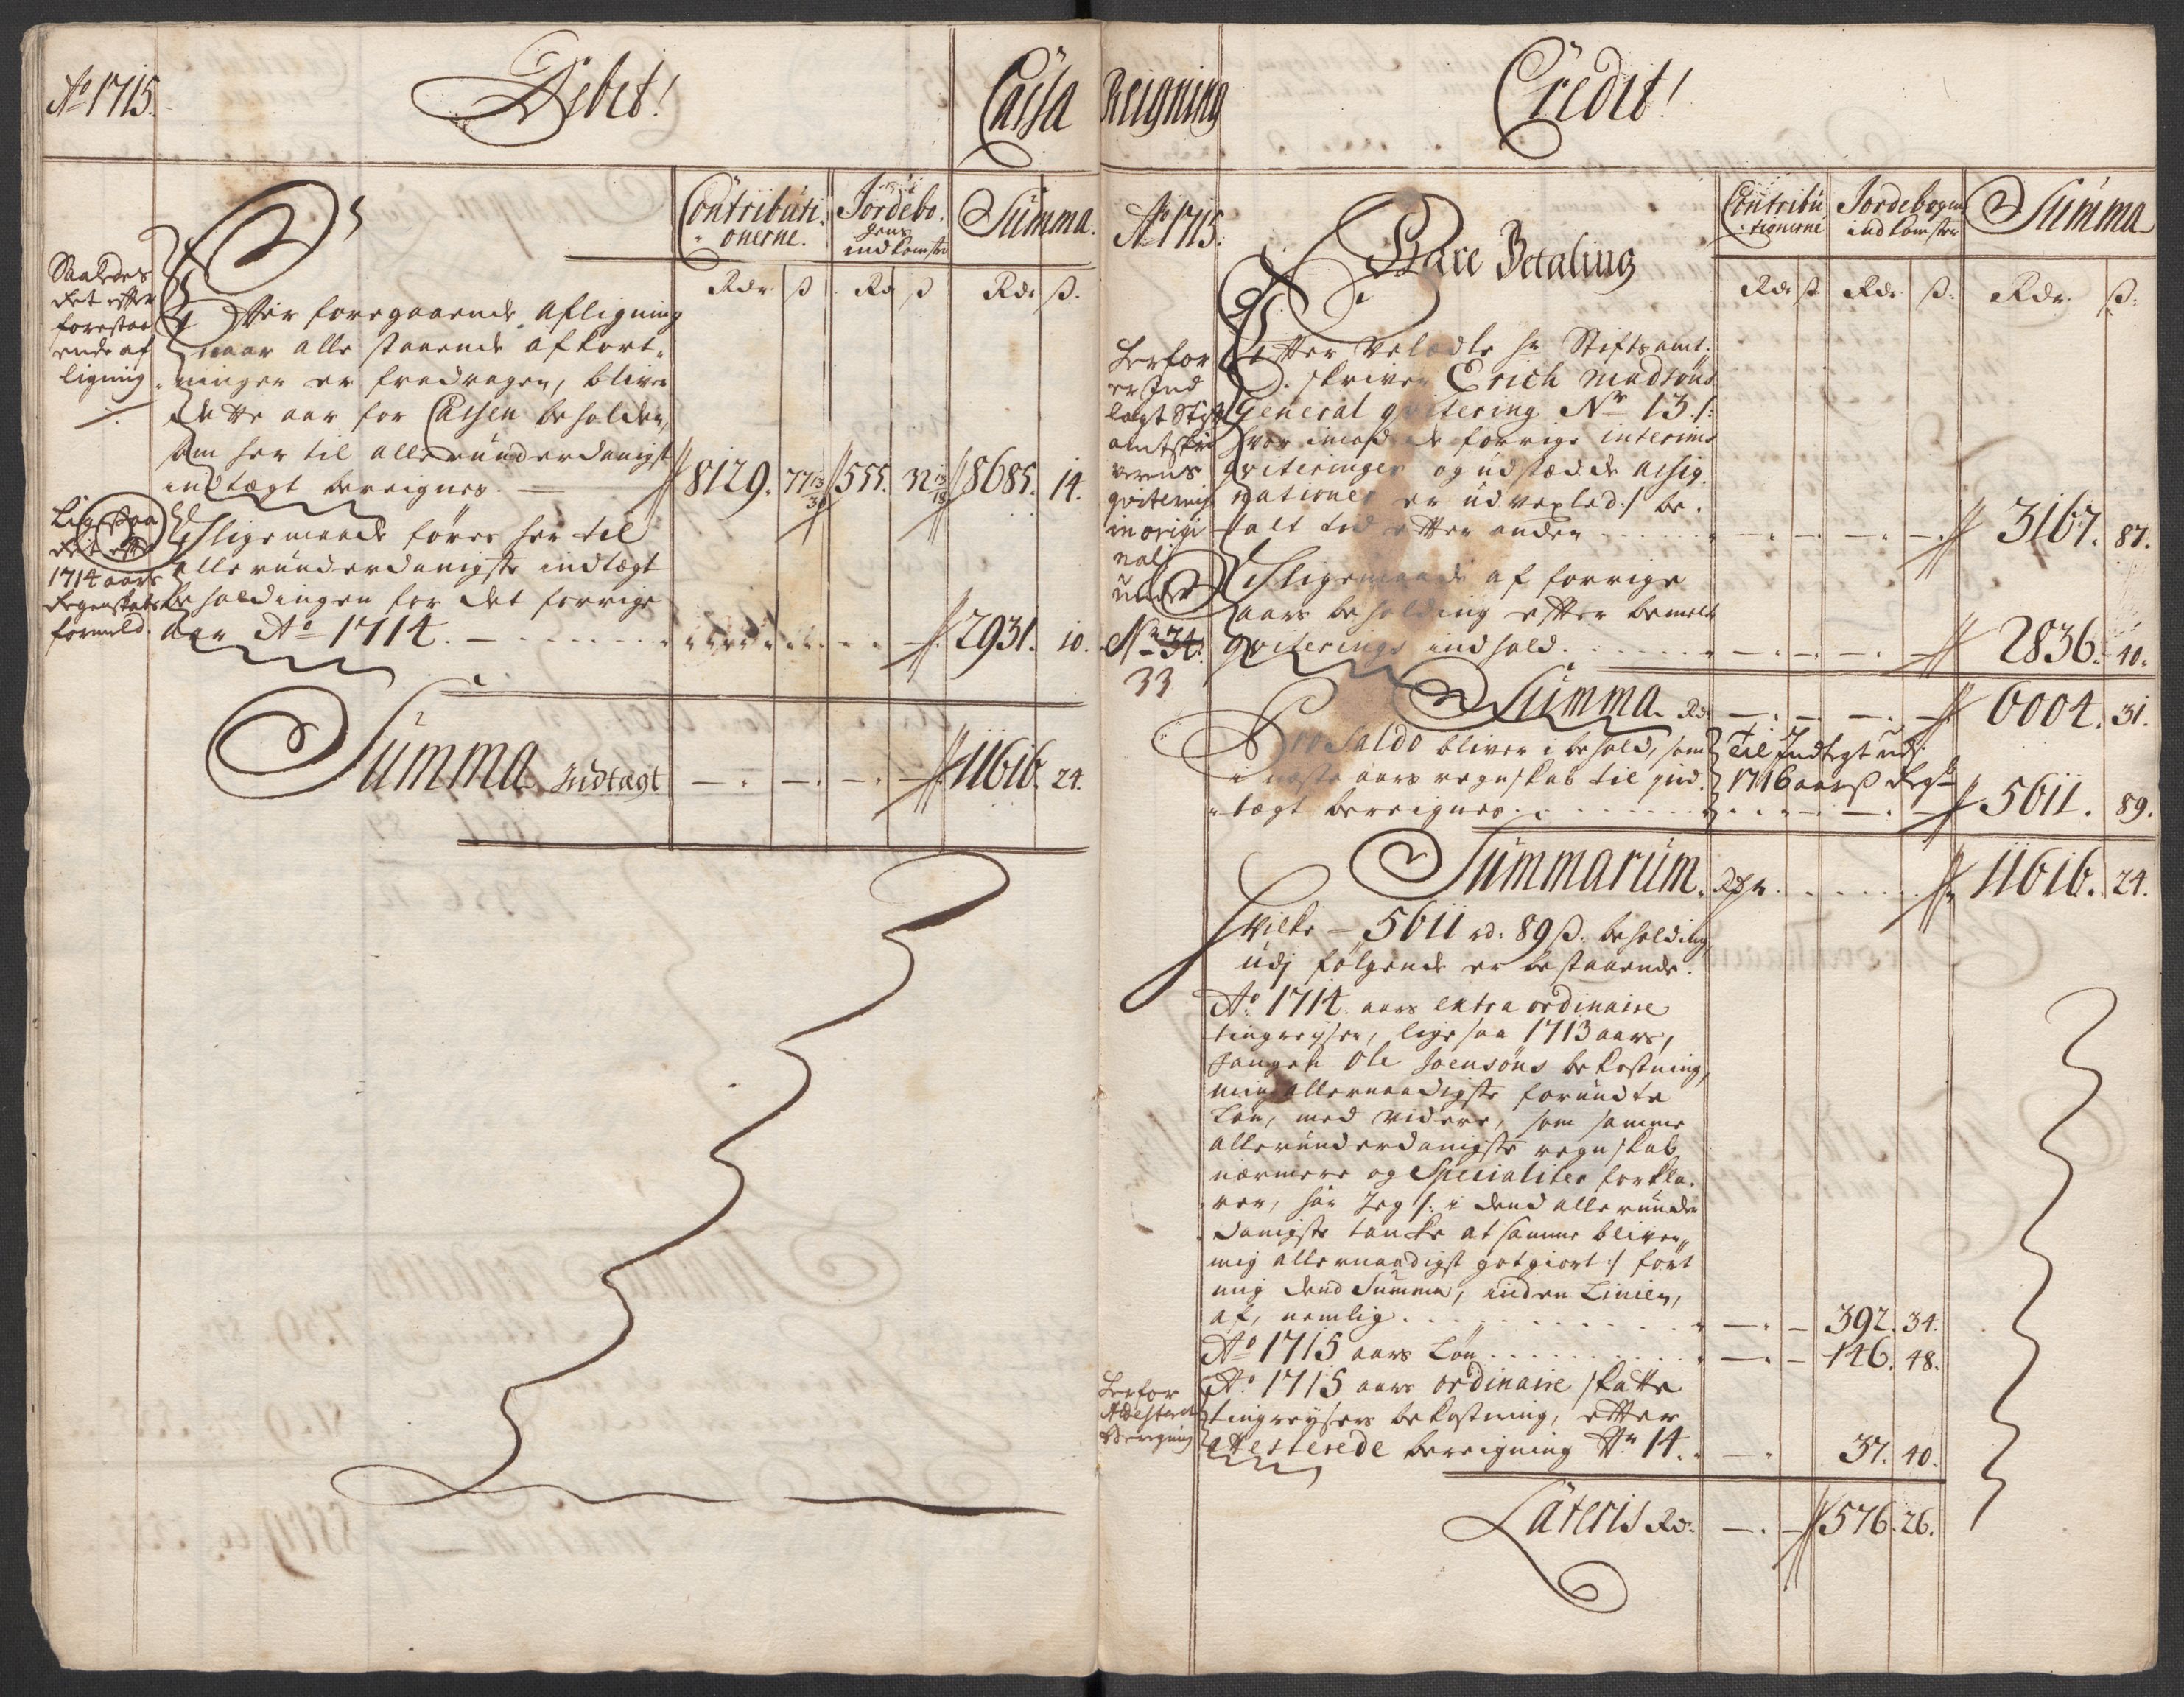 Ao 1715.
Debet!
Cassa
Contributi-
onerne.
Jordebo-
gens
indkomster
Summa.
Rdr ß Rd ß Rdr ß.
Saaledes
det efter
forestaa
ende af
ligning
Efter foregaaende afligning
naar alle staaende afkort-
ninger er fradragen, bliver
dette aar for Cassen beholden,
som her til allerunderdanigst
indtægt bereignes. — 8129. 77 13/3 555. 32 13/19 8685. 14.
Ligesaa
det efter
1714 aars
Regenskabs
formeld.
Ligemaade føres her til
allerunderdanigste indtægt
beholdingen for det forrige
aar Ao 1714. 2931. 10.
Summa Indtægt 11616. 24.
Reigning
Credit!
Ao 1715.
Contribu
tionerne
Jordebogens
indkomster
Summa
Bare Betaling
Rdr ß Rdr ß. Rdr. ß.
Herfor
er Ind
lagt Stift
amtskri
verens
qvitering
in origi
nal
under
No 34.
33
Efter Velædle hr Stiftsamt-
skriver Erich Madsøns
General qvitering Nr 13 /:
hvor imod de forrige interims
qviteringer og udstædde assig-
nationer er udvexled :/ be-
talt tid efter anden 3167. 87.
Ligemaade af forrige
aars beholding efter bemelte
qviterings indhold. 2836. 40.
Summa Rdr 6004. 31.
Pro Saldo bliver i behold, som
i næste aars regnskab til ind-
tægt bereignes.
Til Indtegt udj
1716 aarß Regsk 5611. 89.
Summarum. Rdr. 11616. 24.
Hvilke — 5611 rd. 89 ß. beholding
udj følgende er bestaaende.
Ao 1714 aars extra ordinaire
tingreyser, lige saa 1713 aars,
fangen Ole Joensøns bekostning,
min allernaadigste forundte
Løn, med videre, som samme
allerunderdanigste regnskab
nærmere og Specialiter forkla-
rer, har Jeg /: i dend allerunder
danigste tancke at samme bliver
mig allernaadigst got giort :/ ført
mig dend Summa, inden Linien,
af, nemlig 392. 34.
Ao 1715 aars Løn 146. 48.
Herfor
Attesterede
Beregning
Ao 1715 aars ordinaire skatte
tingreysers bekostning, efter
attesterede bereigning Nr 14. 37. 40.
Lateris Rdr. 576. 26.